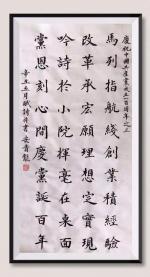 慶祝中國共產黨成立一百周年之
馬列指航綫創業積經驗
改革承宏願理想定實現
吟詩於小院揮毫在東面
黨恩刻心間慶黨誕百年
辛丑五月賦詩并書